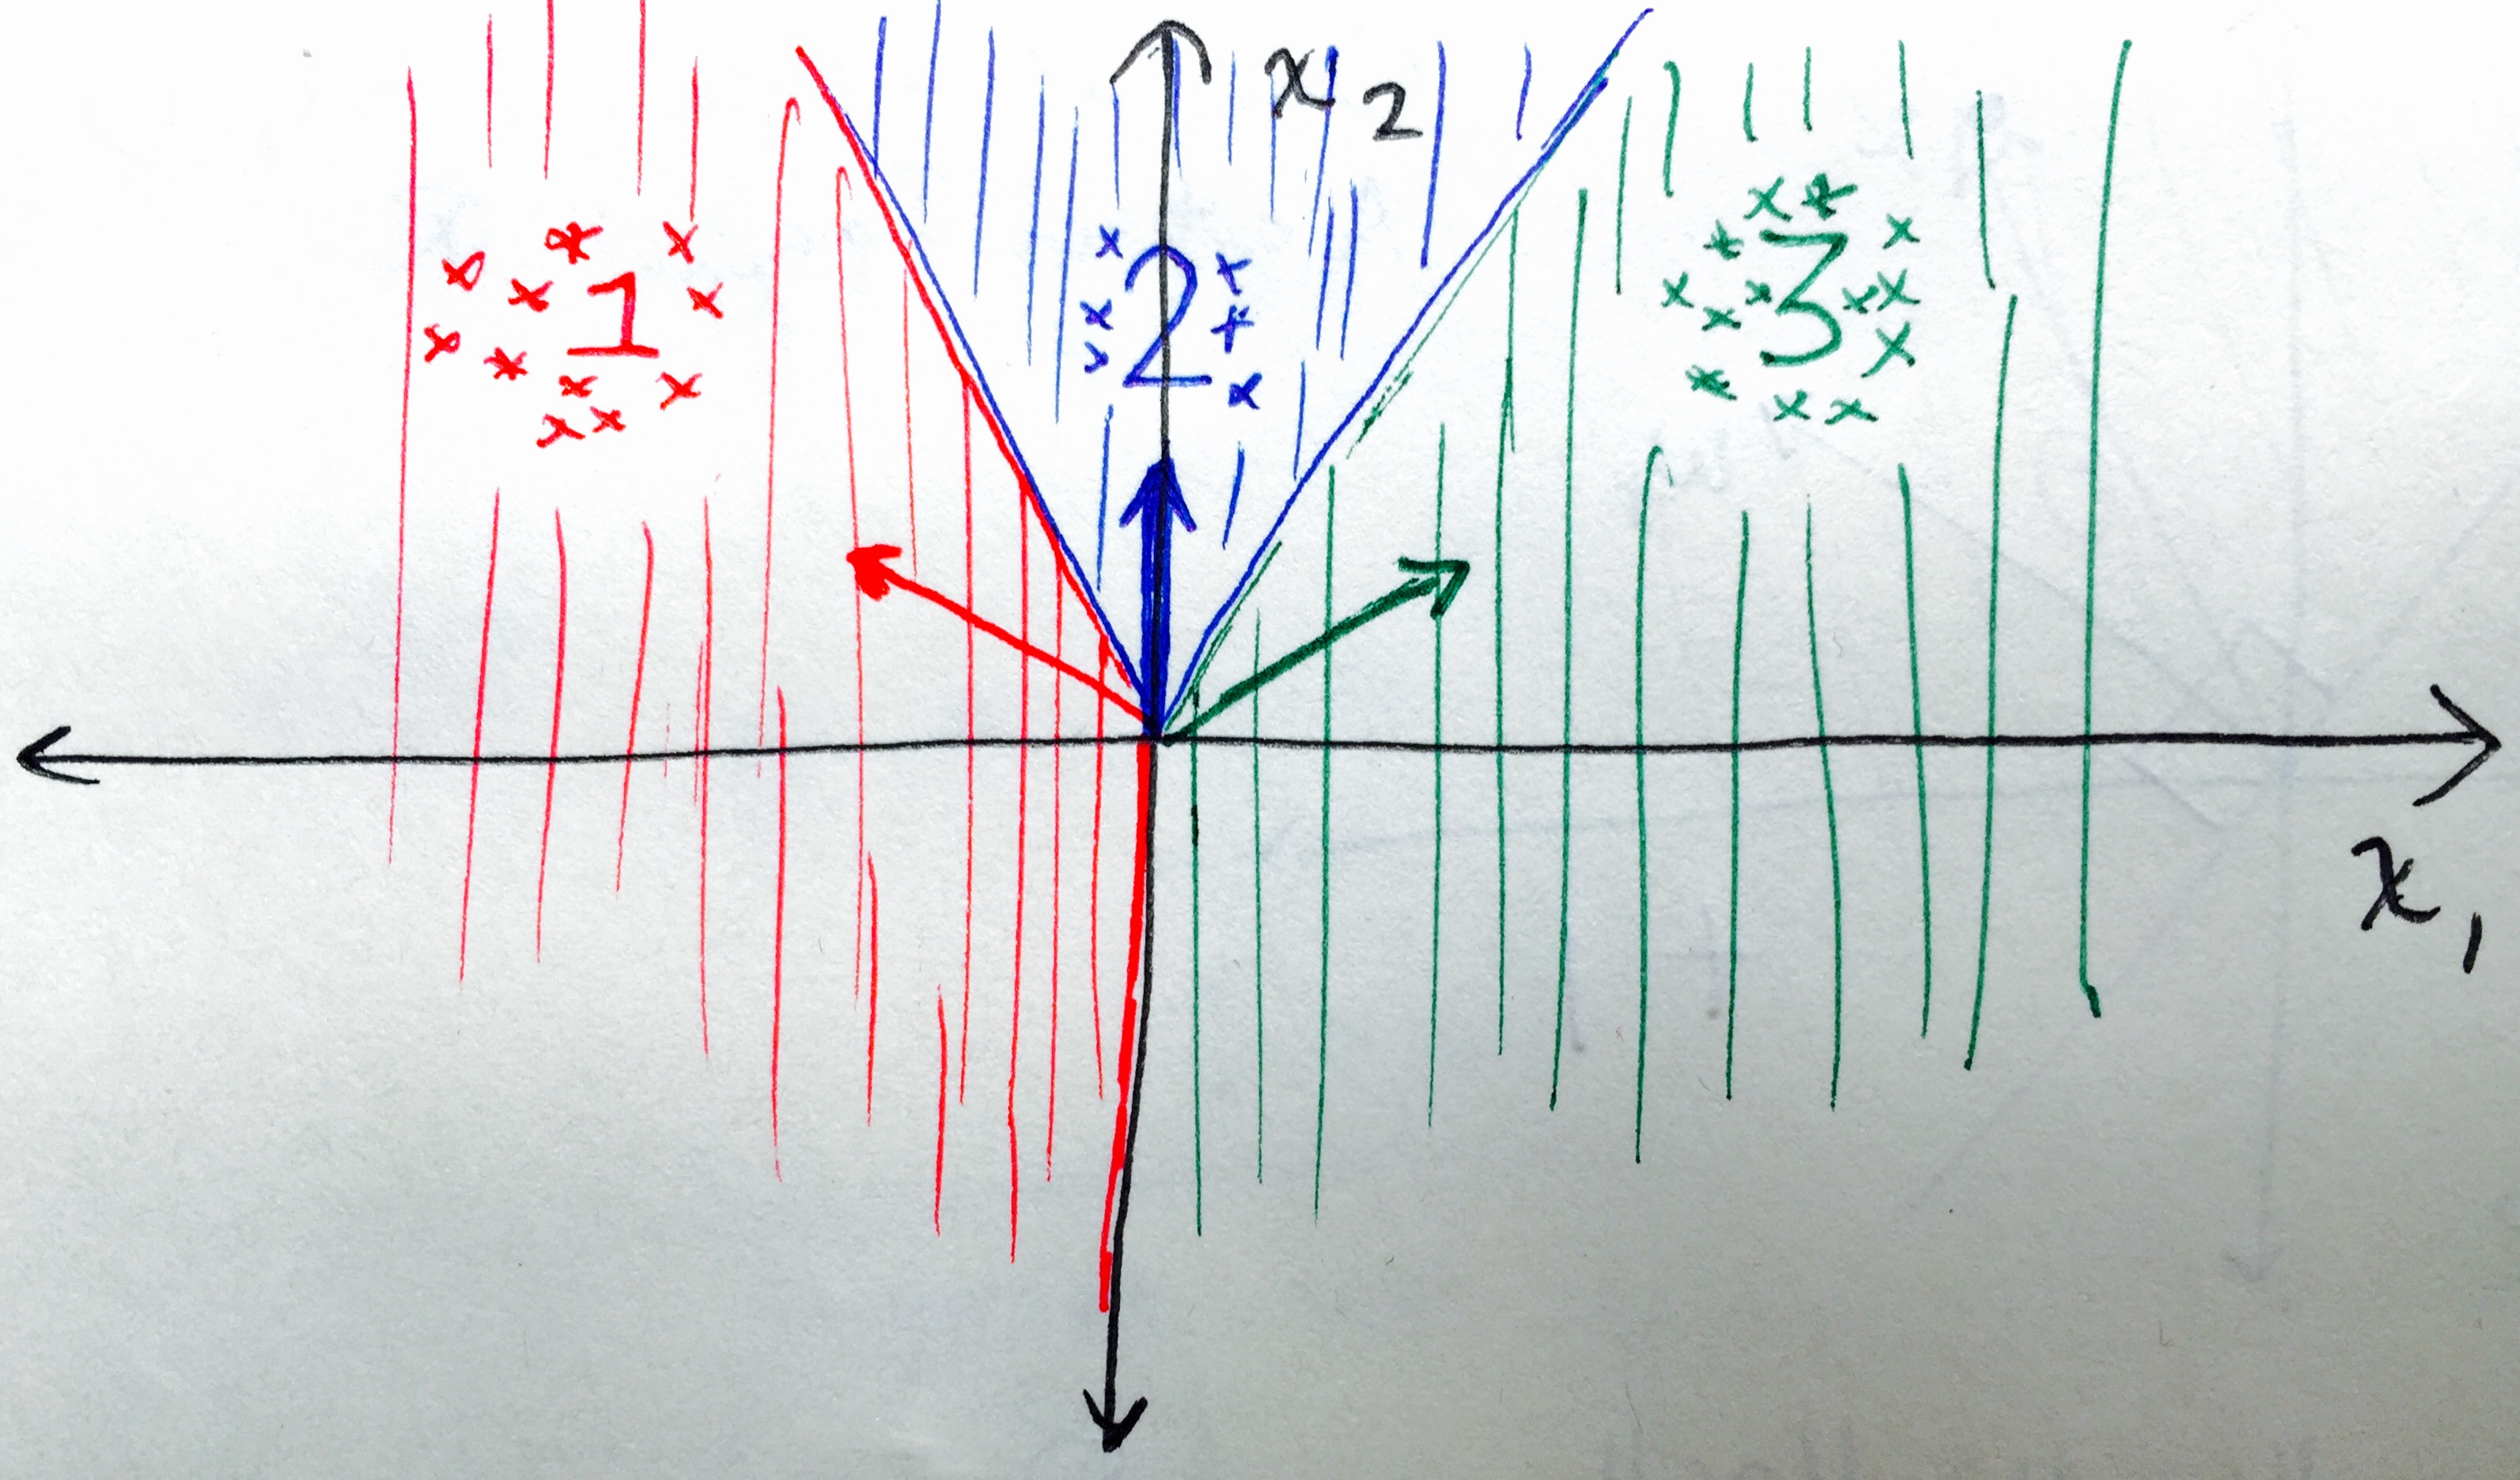 x2
1 2 3
x1